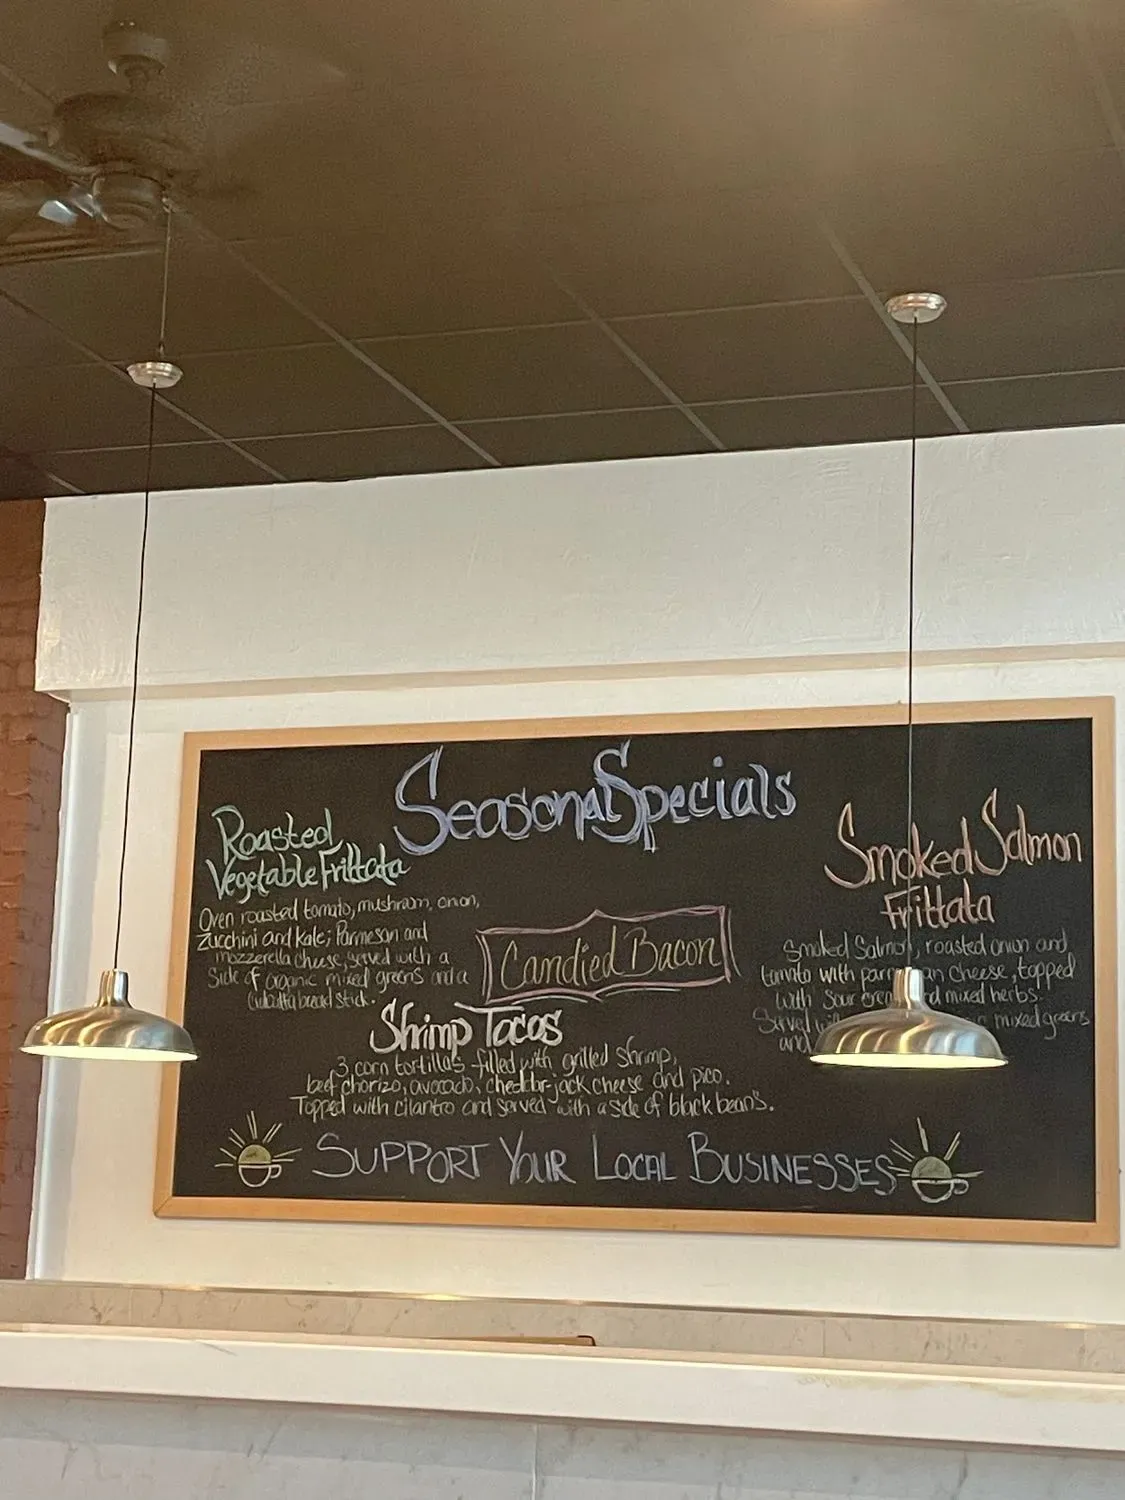 Seasonal Specials
Roasted
Vegetable Frittata
Oven roasted tomato, mushroom, onion,
Zucchini and kale; Parmesan and
mozzerella cheese, served with a
Side of organic mixed greens and a
bread stick.
Candied Bacon
Shrimp Tacos
3 corn tortillas filled with grilled shrimp,
beef chorizo, avocado, cheddar-jack cheese and pico.
Topped with cilantro and served with a side of black beans.
Smoked Salmon
Frittata
Smoked Salmon, roasted onion and
tomato with cheese, topped
with Sour mixed herbs.
Served mixed greens
and
SUPPORT YOUR LOCAL BUSINESSES